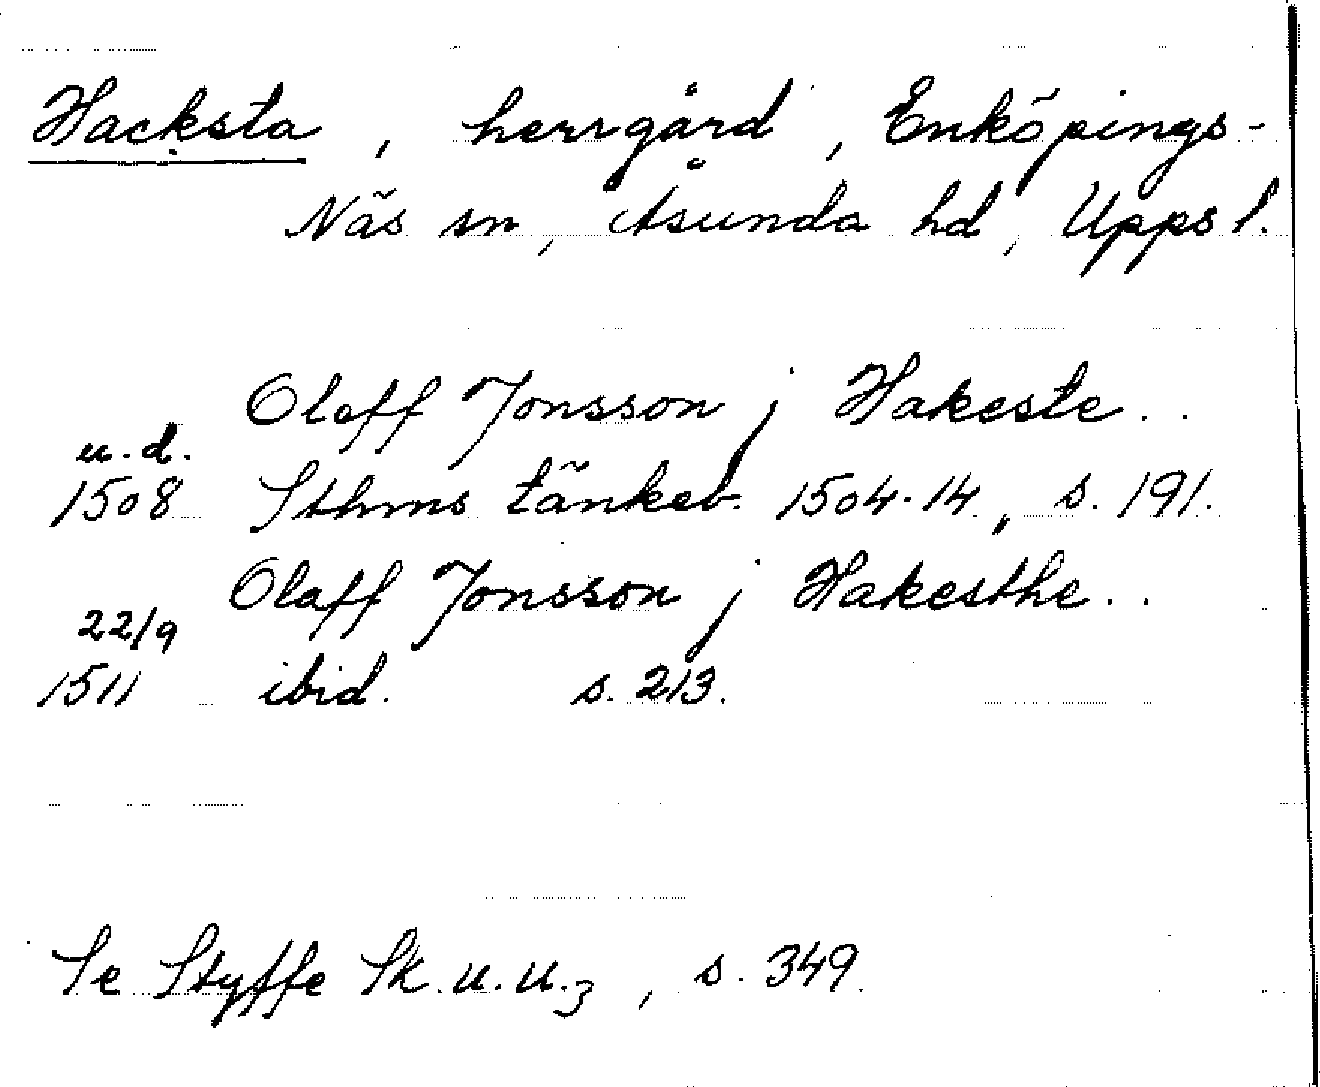 Hacksta, herrgård, Enköpings-
Näs sn, Åsunda hd, Upps l.
Oloff Jonsson j Hakeste..
u.d.
1508 Sthms tänkeb. 1504-14, s. 191.
Olaff Jonsson j Hakesthe..
22/9
1511 ibid. s. 213.
Se Styffe Sk. u. u.3, s. 349.